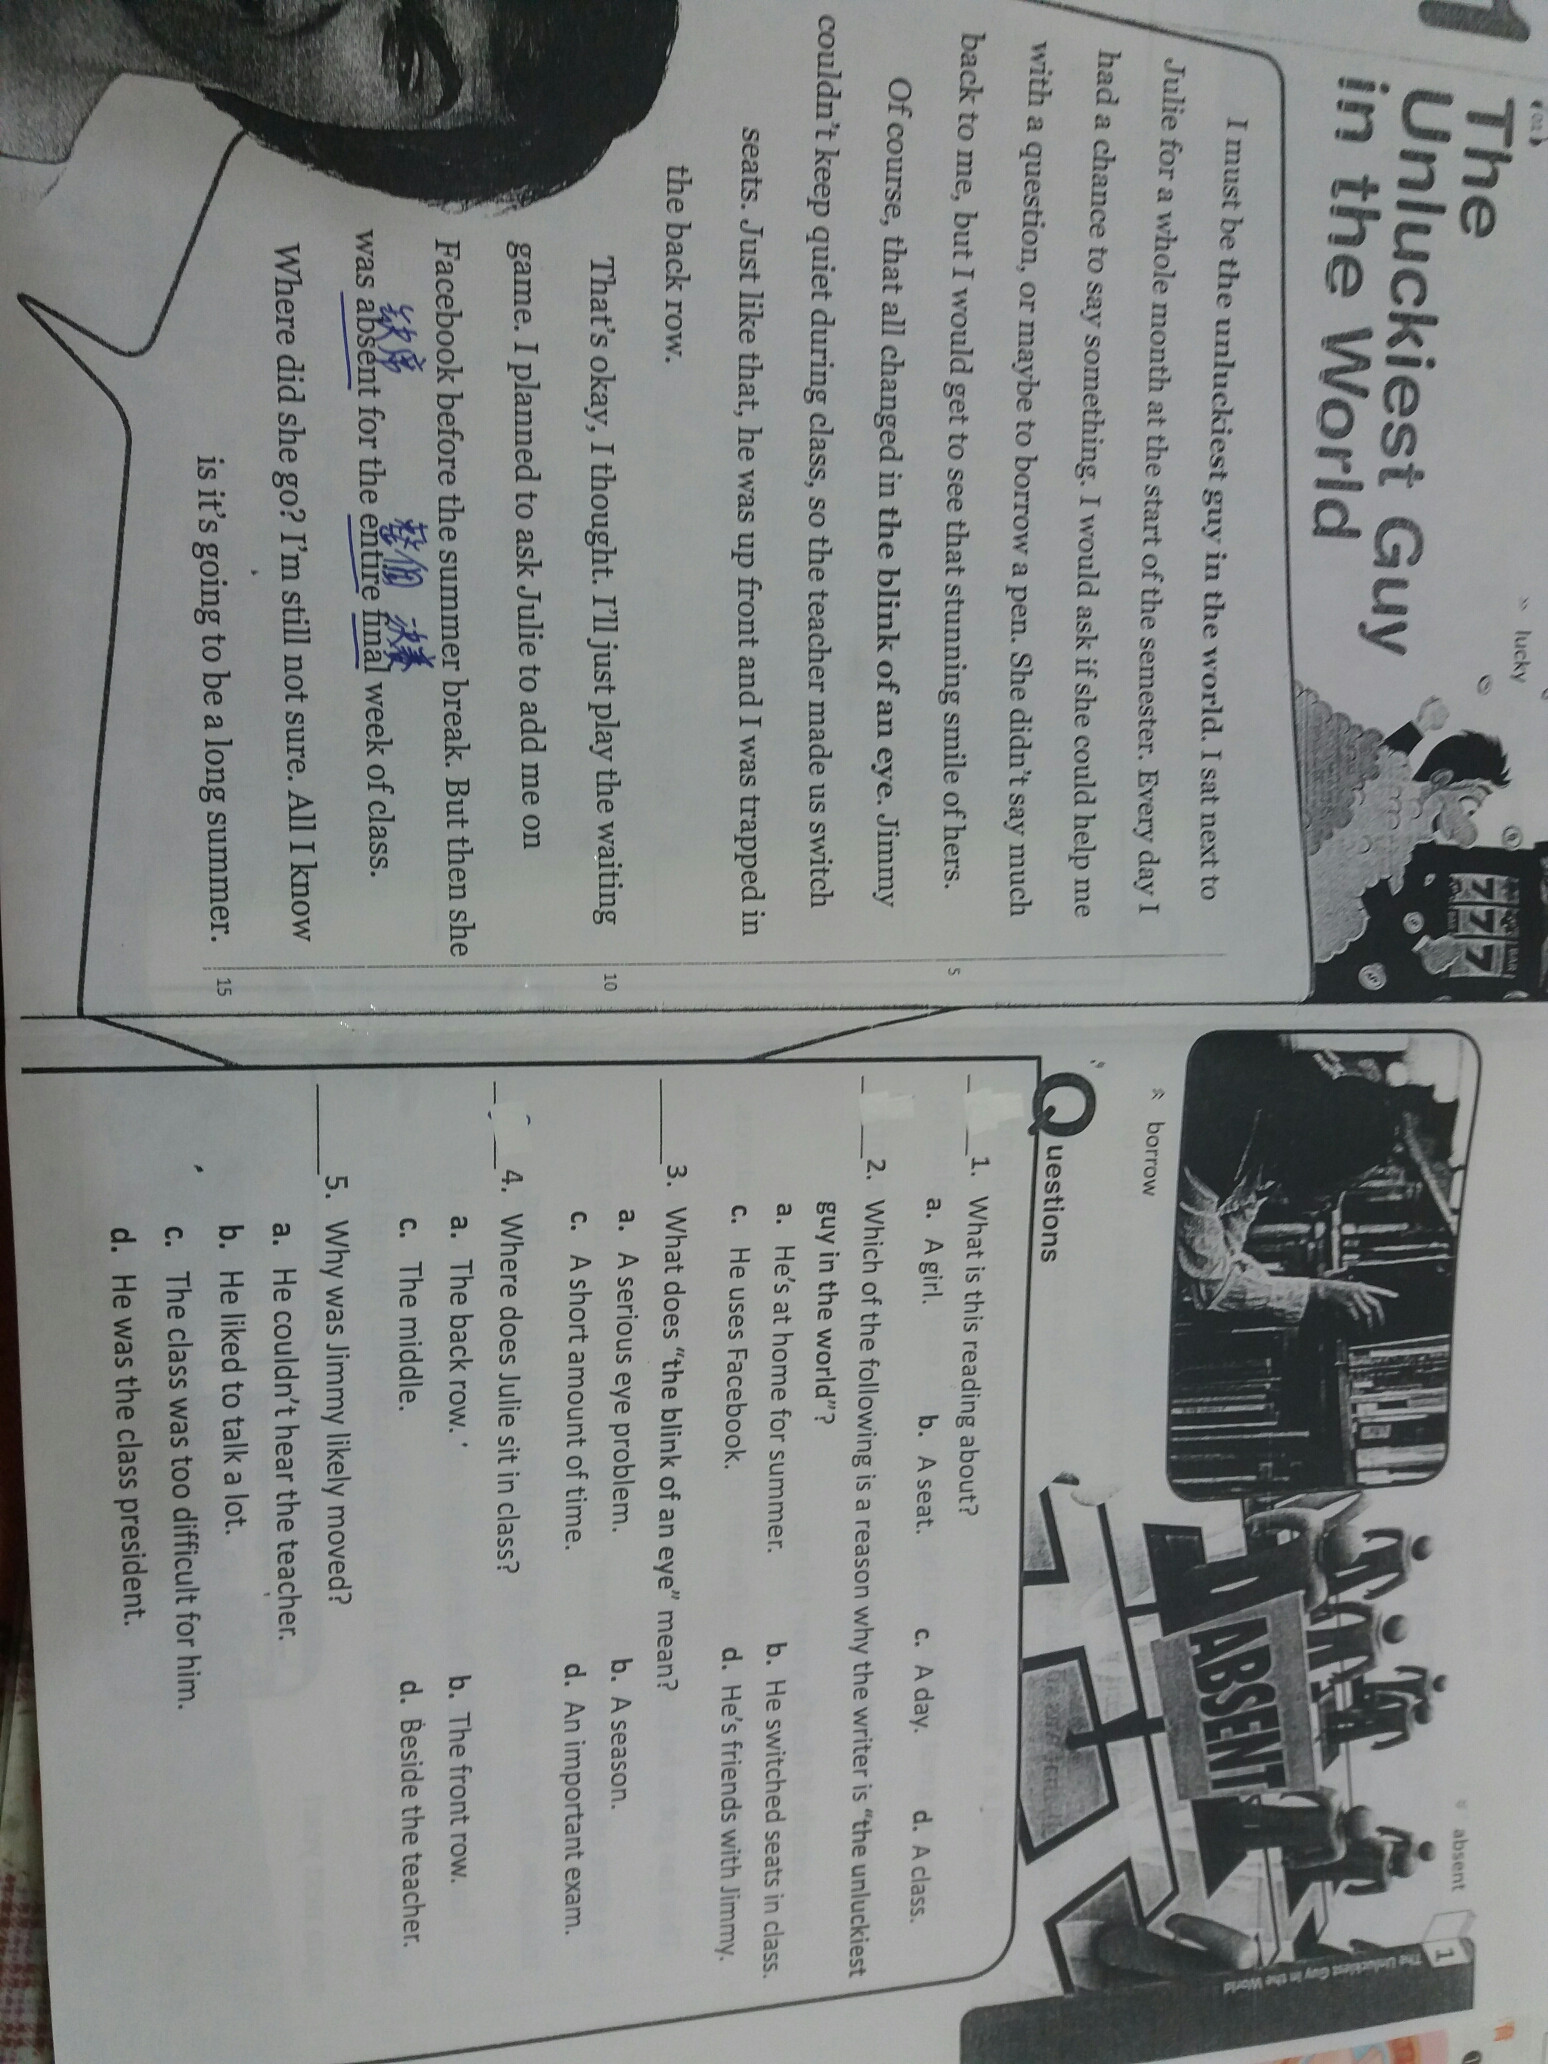 1
The
Unluckiest Guy
in the World
lucky
777
I must be the unluckiest guy in the world. I sat next to
Julie for a whole month at the start of the semester. Every day I
had a chance to say something. I would ask if she could help me
with a question, or maybe to borrow a pen. She didn't say much
back to me, but I would get to see that stunning smile of hers.
5
Of course, that all changed in the blink of an eye. Jimmy
couldn't keep quiet during class, so the teacher made us switch
seats. Just like that, he was up front and I was trapped in
the back row.
That's okay, I thought. I'll just play the waiting
10
game. I planned to ask Julie to add me on
Facebook before the summer break. But then she
缺席 整個
was absent for the entire final week of class.
Where did she go? I'm still not sure. All I know
is it's going to be a long summer.
15
absent
1
The Unluckiest Guy in the World
ABSENT
borrow
Questions
1. What is this reading about?
a. A girl. b. A seat. c. A day. d. A class.
2. Which of the following is a reason why the writer is "the unluckiest
guy in the world"?
a. He's at home for summer. b. He switched seats in class.
c. He uses Facebook. d. He's friends with Jimmy.
3. What does "the blink of an eye" mean?
a. A serious eye problem. b. A season.
c. A short amount of time. d. An important exam.
4. Where does Julie sit in class?
a. The back row. b. The front row.
c. The middle. d. Beside the teacher.
5. Why was Jimmy likely moved?
a. He couldn't hear the teacher.
b. He liked to talk a lot.
c. The class was too difficult for him.
d. He was the class president.